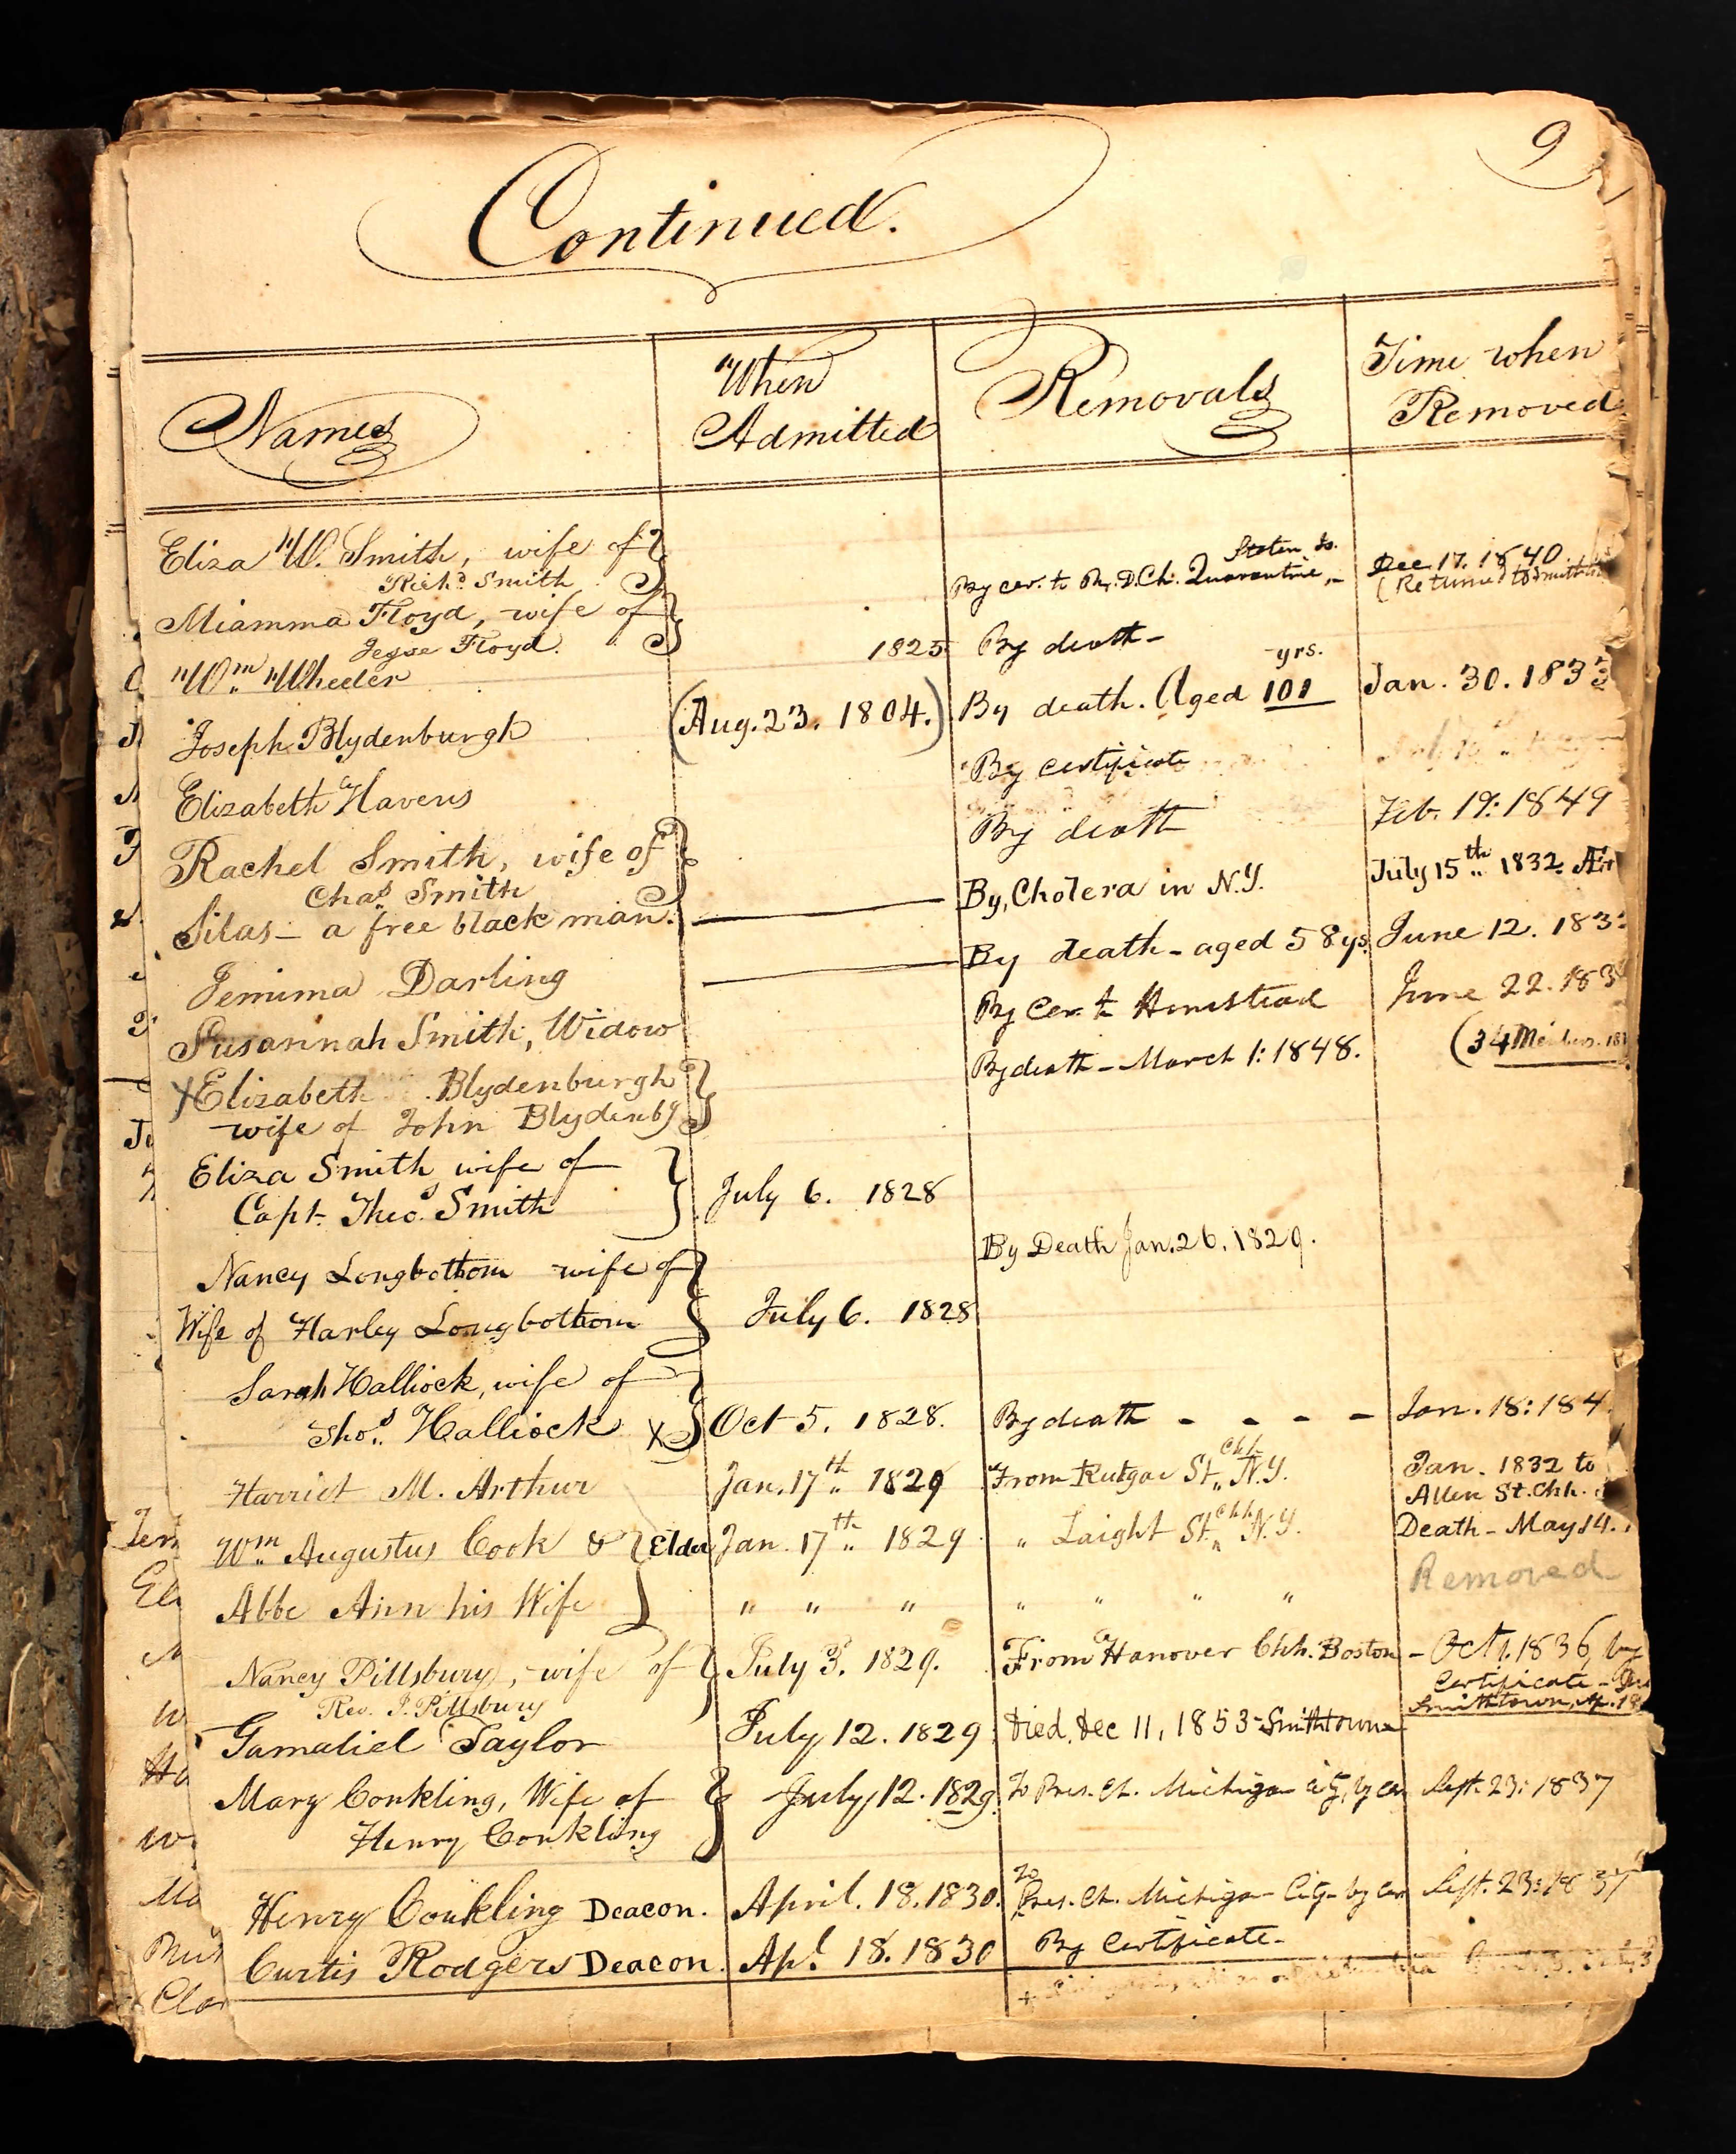 9
Continued.
Names
When Admitted
Removals
Time when Removed
Eliza W. Smith, wife of
Rich.d Smith
By cer. to R. D. Ch. Quarantine, Staten Is.
Dec. 17. 1840
(Returned to Smith
Miamma Floyd, wife of
Jesse Floyd.
1825
By death -
Wm. Wheeler
(Aug. 23. 1804.)
By death. Aged 101 yrs.
Jan. 30. 1833
Joseph Blydenburgh
By certificate
Elizabeth Havens
By death
Feb. 19: 1849
Rachel Smith, wife of
Chas. Smith
By, Cholera in N.Y.
July 15th 1832.
Silas - a free black man.
By death - aged 58 ys.
June 12. 183
Jemima Darling
By Cer. to Hemstead
June 22. 183
Susannah Smith, Widow
By death - March 1: 1848.
(34 Members. 18
x Elizabeth Blydenburgh
wife of John Blydenbg
Eliza Smith wife of
Capt. Theo.s Smith
July 6. 1828
Nancy Longbothom wife of
Wife of Harley Longbothom
July 6. 1828
By Death Jan. 26. 1829.
Sarah Halliock, wife of
Tho.s Halliock x
Oct 5. 1828.
By death - - - -
Jan. 18: 184
Harriet M. Arthur
Jan. 17th 1829
From Rutgar St. Chh N.Y.
Jan. 1832 to
Allen St. Chh.
Wm. Augustus Cook & Elder
Jan. 17th 1829
" Laight St. Chh N.Y.
Death - May 14.
Abbe Ann his Wife
" " "
" " " "
Removed
Nancy Pillsbury, wife of
Rev. I. Pillsbury
July 3. 1829.
From Hanover Chh. Boston
- Oct 1. 1836, by
Certificate -
Smithtown, Ap. 18
Gamaliel Taylor
July 12. 1829
Died, Dec 11, 1853 - Smithtown
Mary Conkling, Wife of
Henry Conkling
July 12. 1829.
To Pres. Ch. Michigan City, by cer
Sept. 23: 1837
Henry Conkling Deacon.
April. 18. 1830.
To Pres. Ch. Michigan City by cer
Sept. 23: 1837
Curtis Rodgers Deacon.
Apl. 18. 1830
By Certificate -